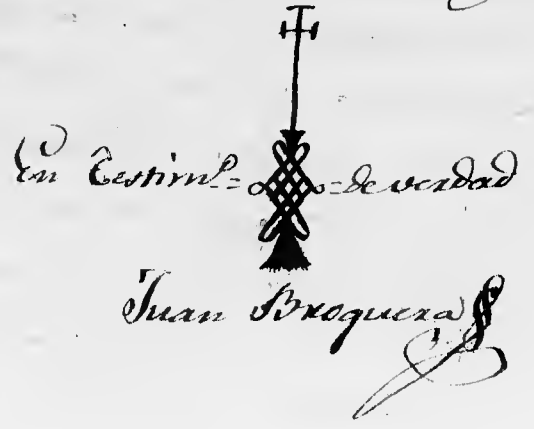 En Testimo = = de verdad
Juan Broquera